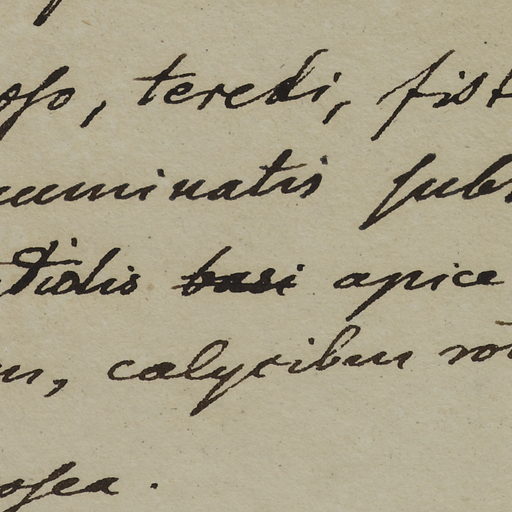 oso, teredi, fist
cuminatis sub
tiolis basi apice
m, calycibus
osea.